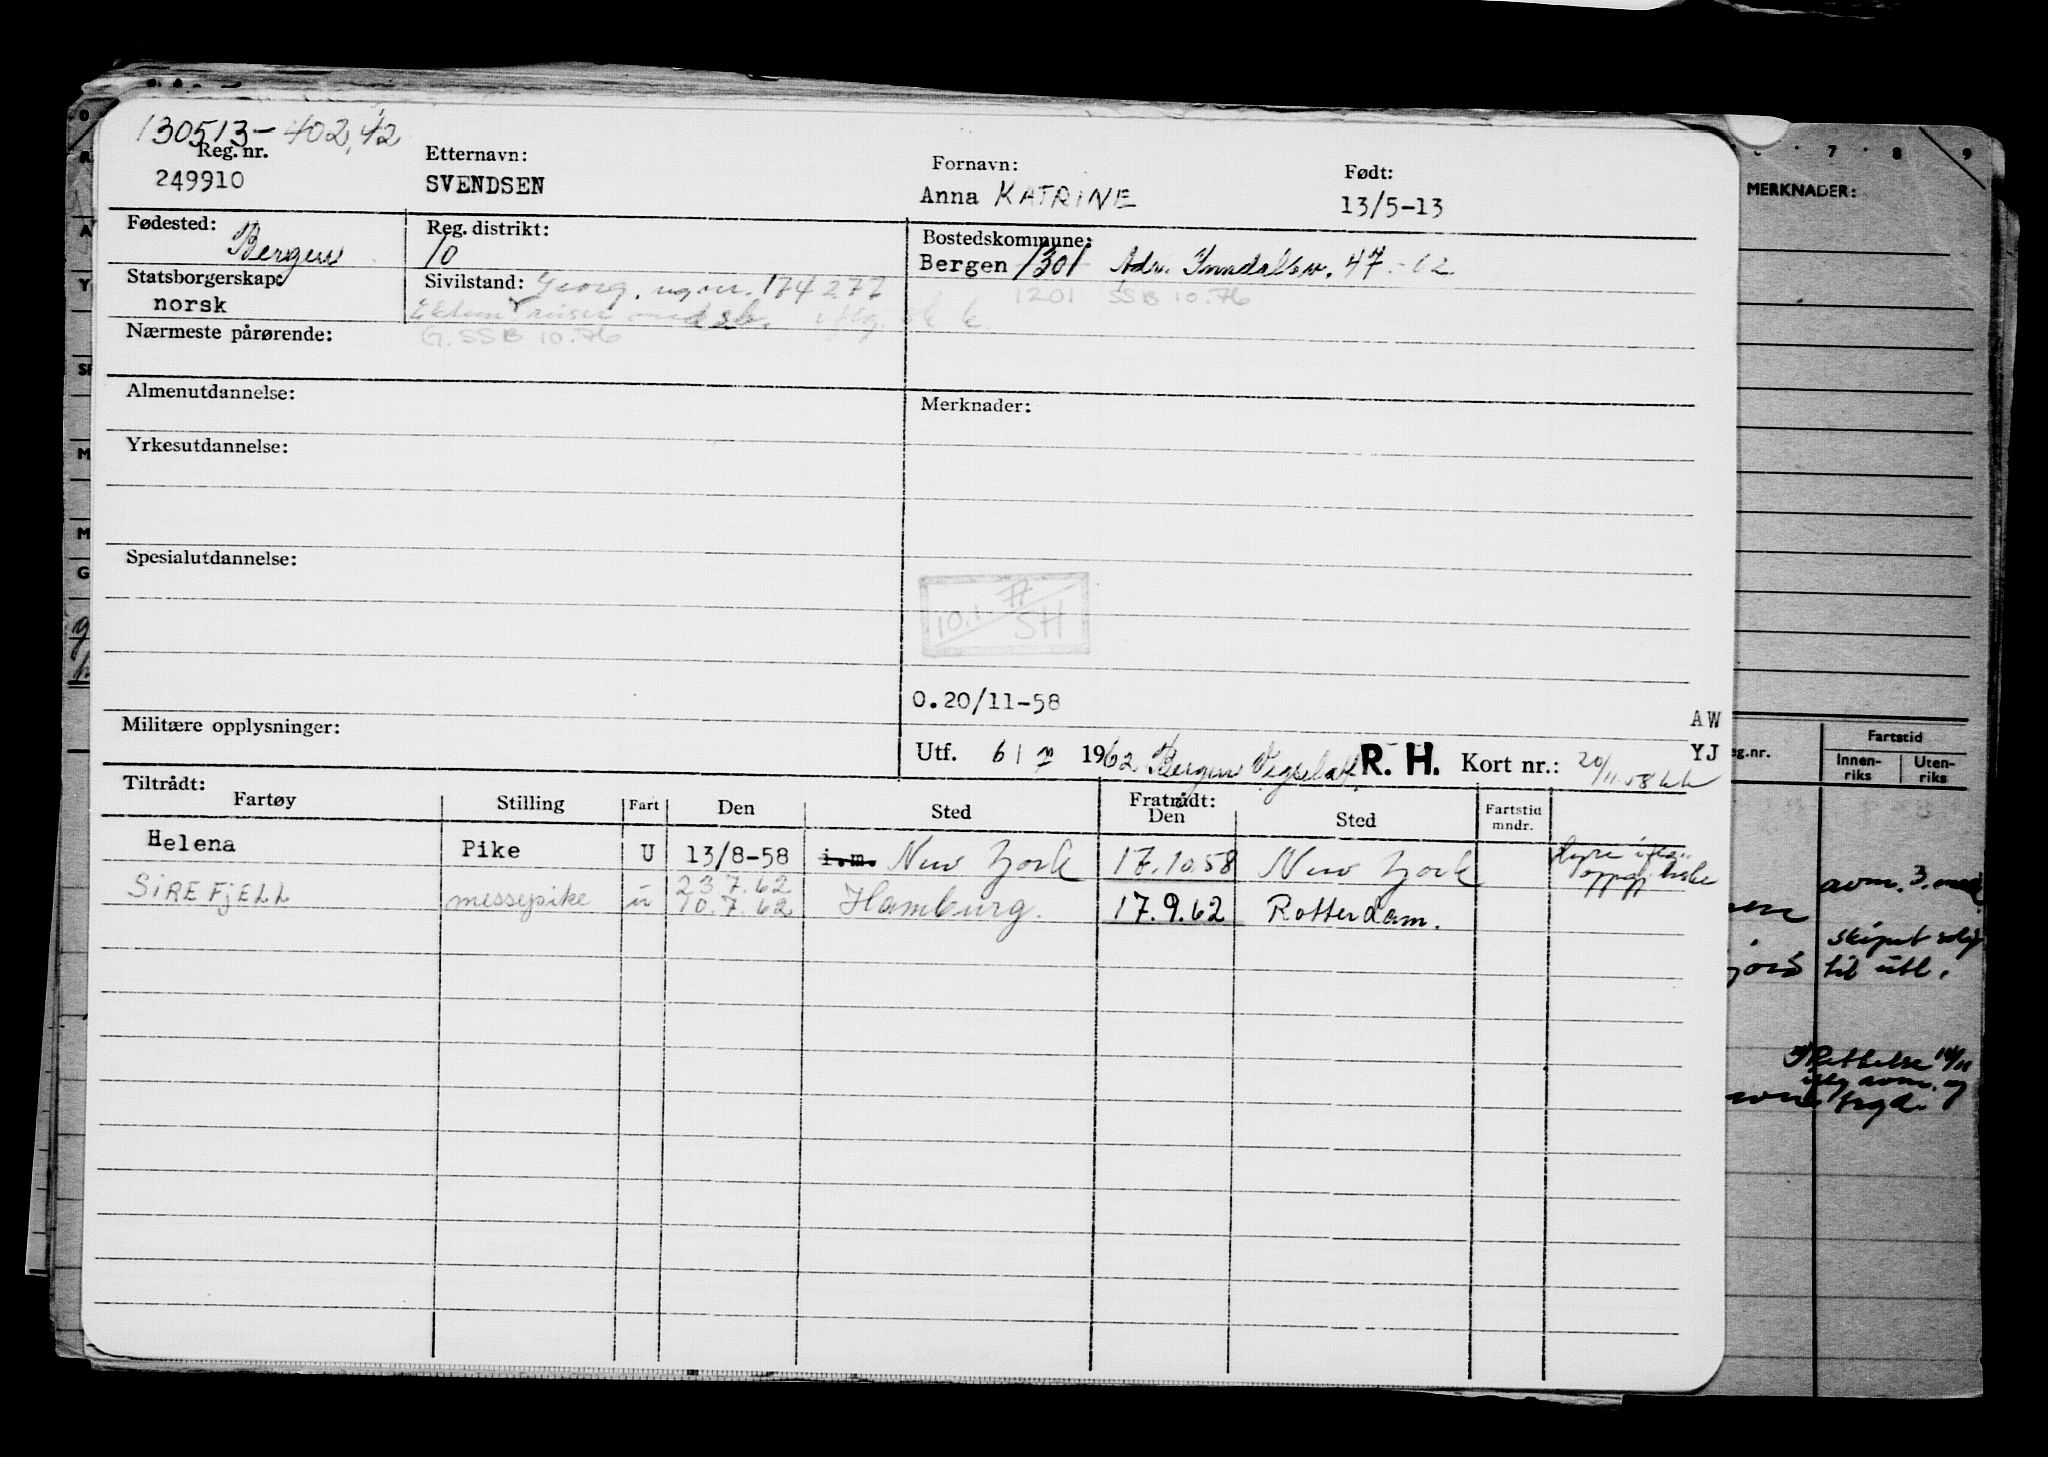 130513-40242
Reg. nr.
249910
Etternavn:
SVENDSEN
Fornavn:
Anna KATRINE
Født:
13/5-13
Fødested:
Bergen
Reg. distrikt:
10
Bostedskommune:
Bergen 1301 Adr. Inndalsv. 47
1201 SSB 10.76
Statsborgerskap:
norsk
Sivilstand: Georg, reg.nr. 174277
G. SSB 10.76
Nærmeste pårørende:
Almenutdannelse:
Merknader:
Yrkesutdannelse:
Spesialutdannelse:
77
10.1 SH
0.20/11-58
AW
Militære opplysninger:
Utf. 6/7 1962 Bergen R. H. Kort nr.: YJ
20/11.58
Tiltrådt: Fratrådt:
Fartøy Stilling Fart Den Sted Den Sted Fartstid mndr.
Helena Pike U 13/8-58 i.m. New York 17.10.58 New York
SIREFJELL messepike u 23.7.62 10.7.62 Hamburg. 17.9.62 Rotterdam.
7 8 9
MERKNADER:
Fartstid
Innenriks Utenriks
avm. 3.
til utl.
Rettelse